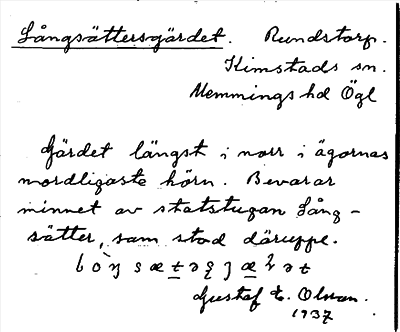 Långsättersgärdet. Rundstorp.
Kimstads sn.
Memmings hd Ögl
Gärdet längst i norr i ägornas
nordligaste hörn. Bevarar
minnet av statstugan Lång-
sätter, som stod däruppe.
Gustaf E. Olson.
1937